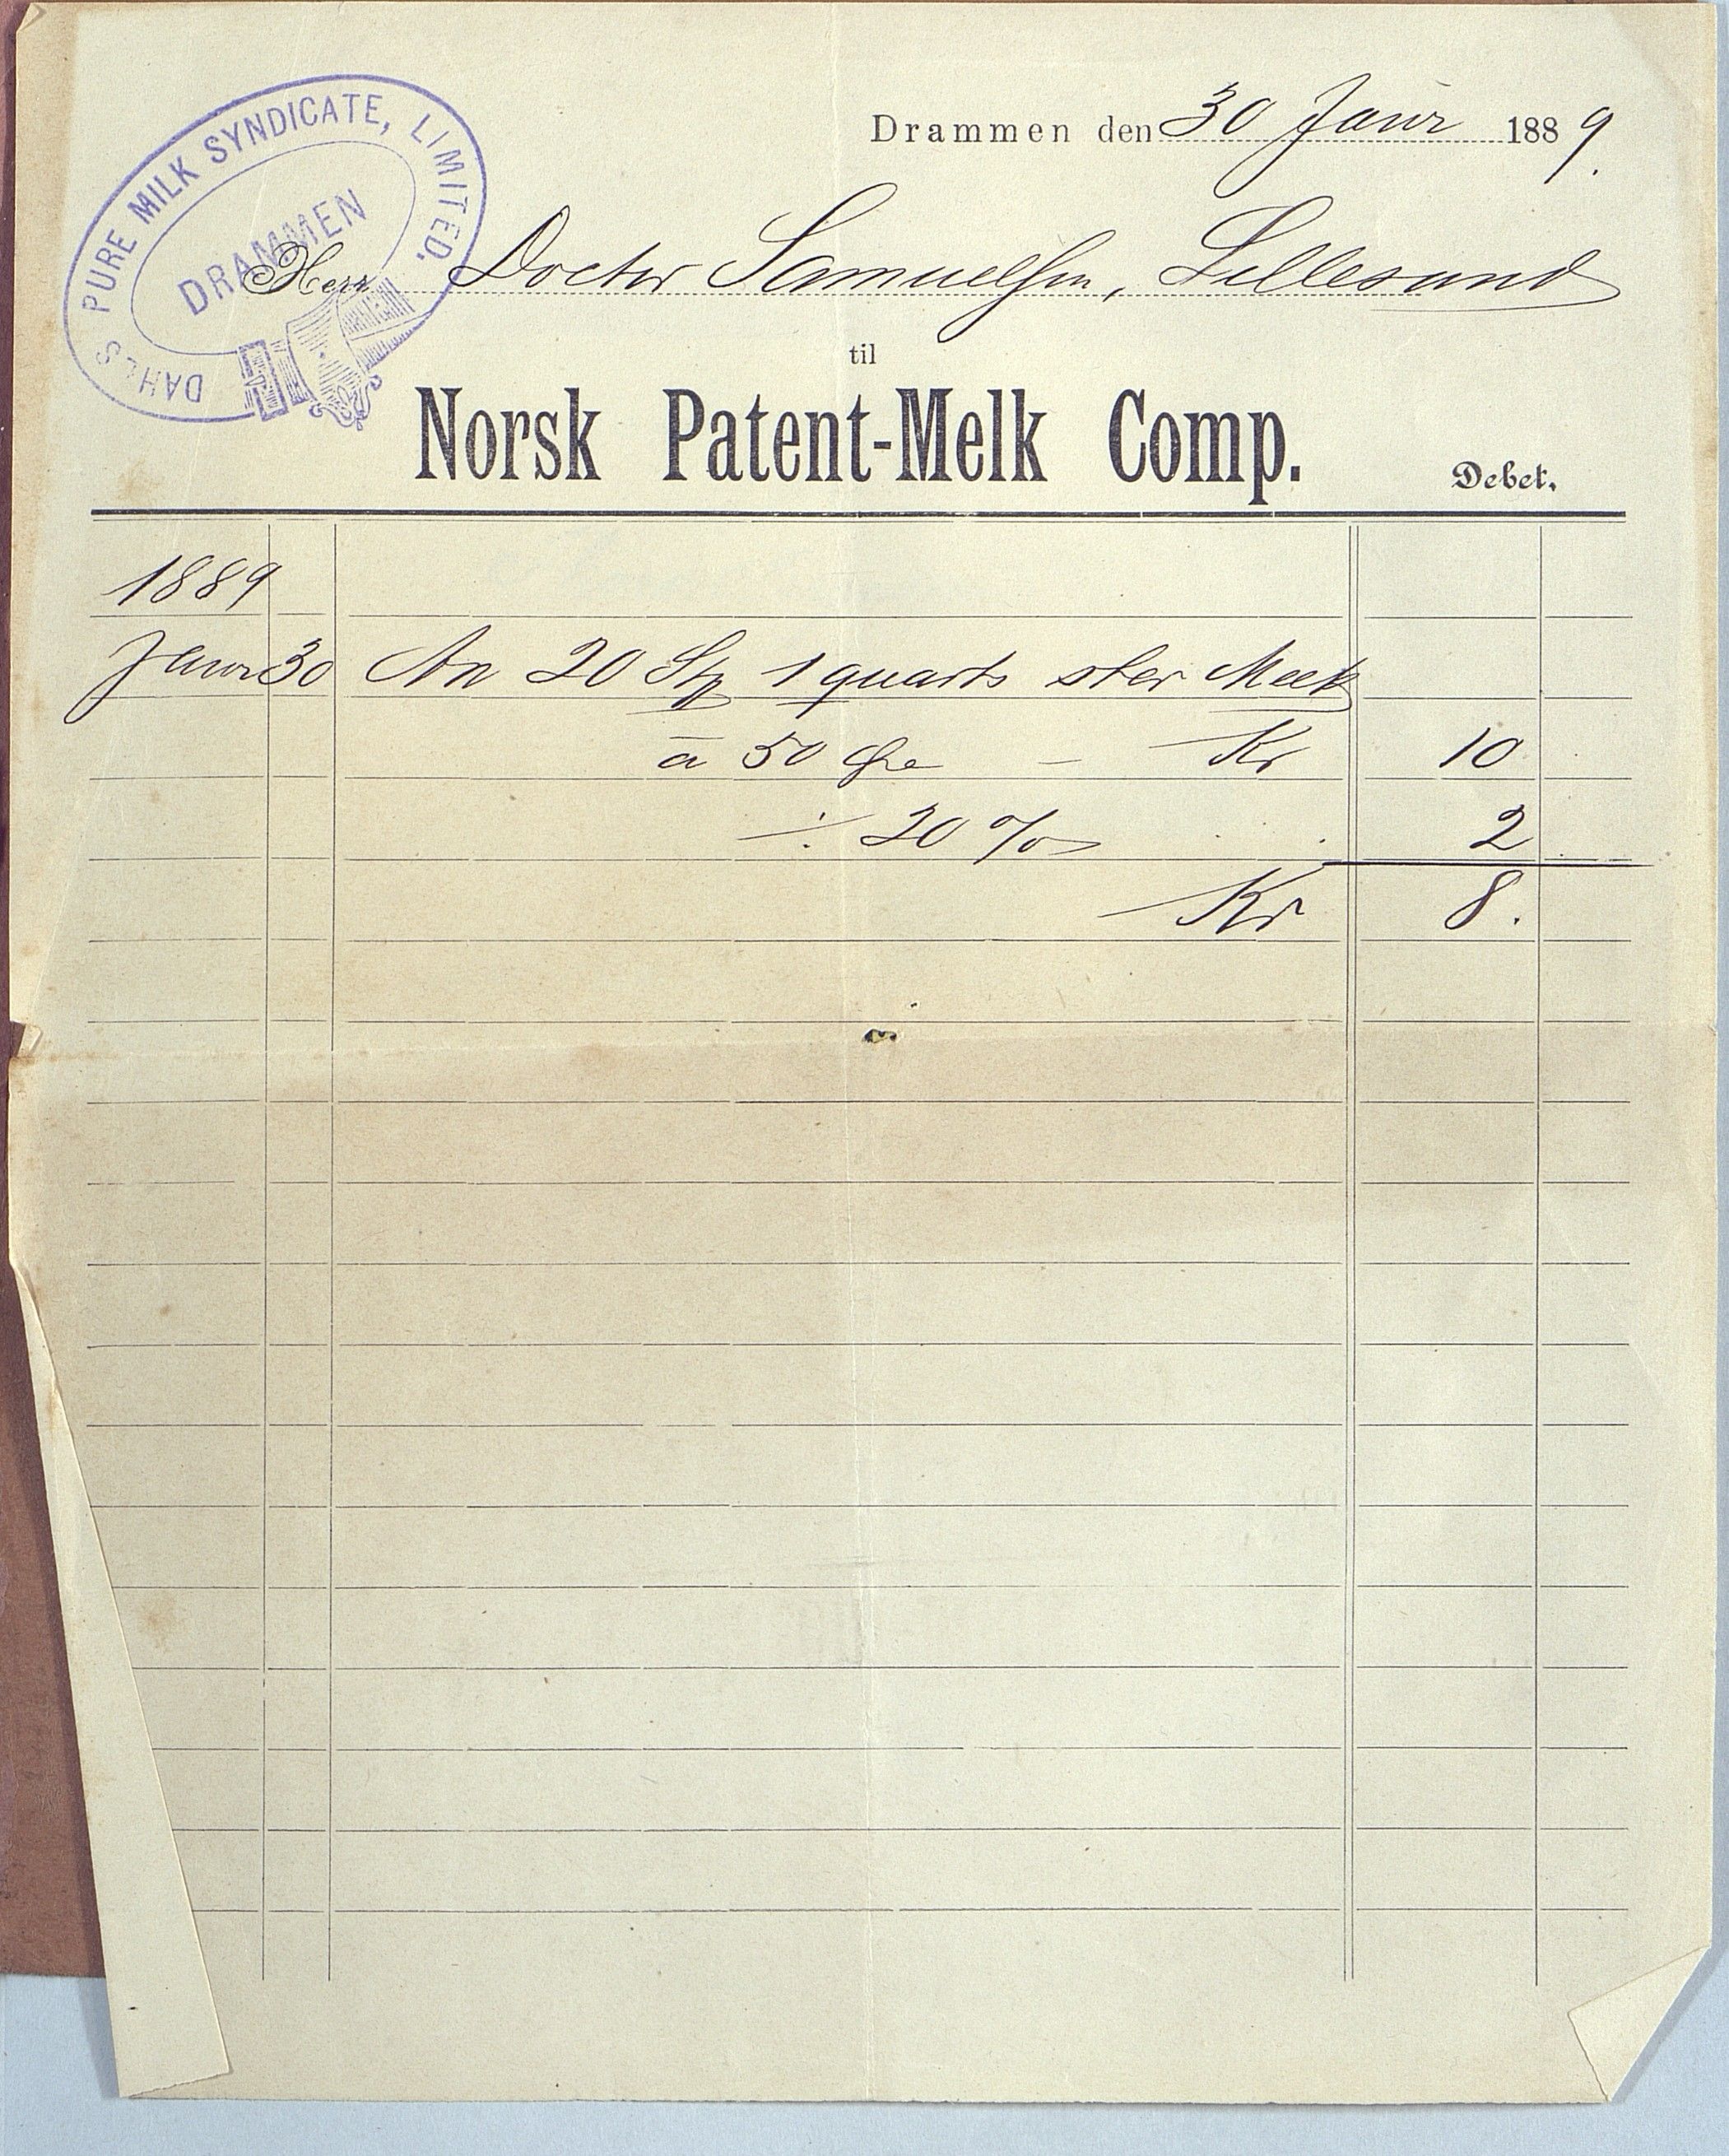 DAHLS PURE MILK SYNDICATE, LIMITED.
DRAMMEN
Drammen den 30 Janr 1889.
Herr Doctor Samuelsen, Lillesand
til
Norsk Patent-Melk Comp.
Debet.
1889
Janr 30 An 20 Stp 1 quarts ster Melk
a 50 Øre - Kr 10
÷ 20 % 2
Kr 8.